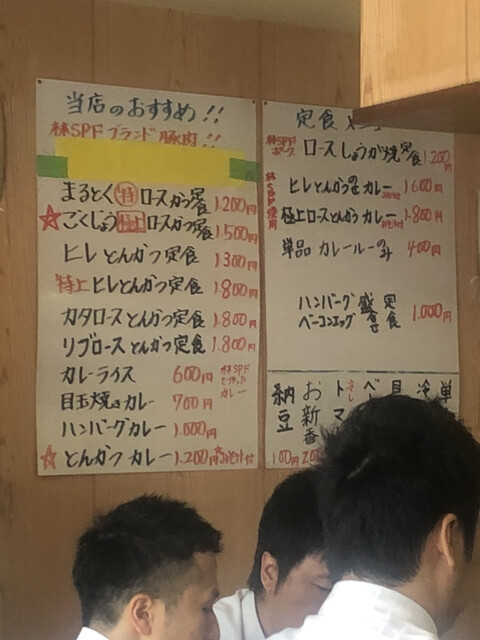 当店のおすすめ!!
林SPFブランド豚肉!!
まるとく特ロースかつ定食 1.200円
ごくじょう極上ロースかつ定食 1.500円
ヒレとんかつ定食 1.300円
特上ヒレとんかつ定食 1.800円
カタロースとんかつ定食 1.800円
リブロースとんかつ定食 1.800円
カレーライス 600円
目玉焼きカレー 700円
ハンバーグカレー 1.000円
とんかつカレー 1.200円
定食メニュー
林SPFポーク ロースしょうが焼定食 1.200円
ヒレとんかつカレー 1.600円
極上ロースとんかつカレー 1.800円
単品カレールーのみ 400円
ハンバーグ
ベーコンエッグ
盛定食 1.000円
納豆 100円
お新